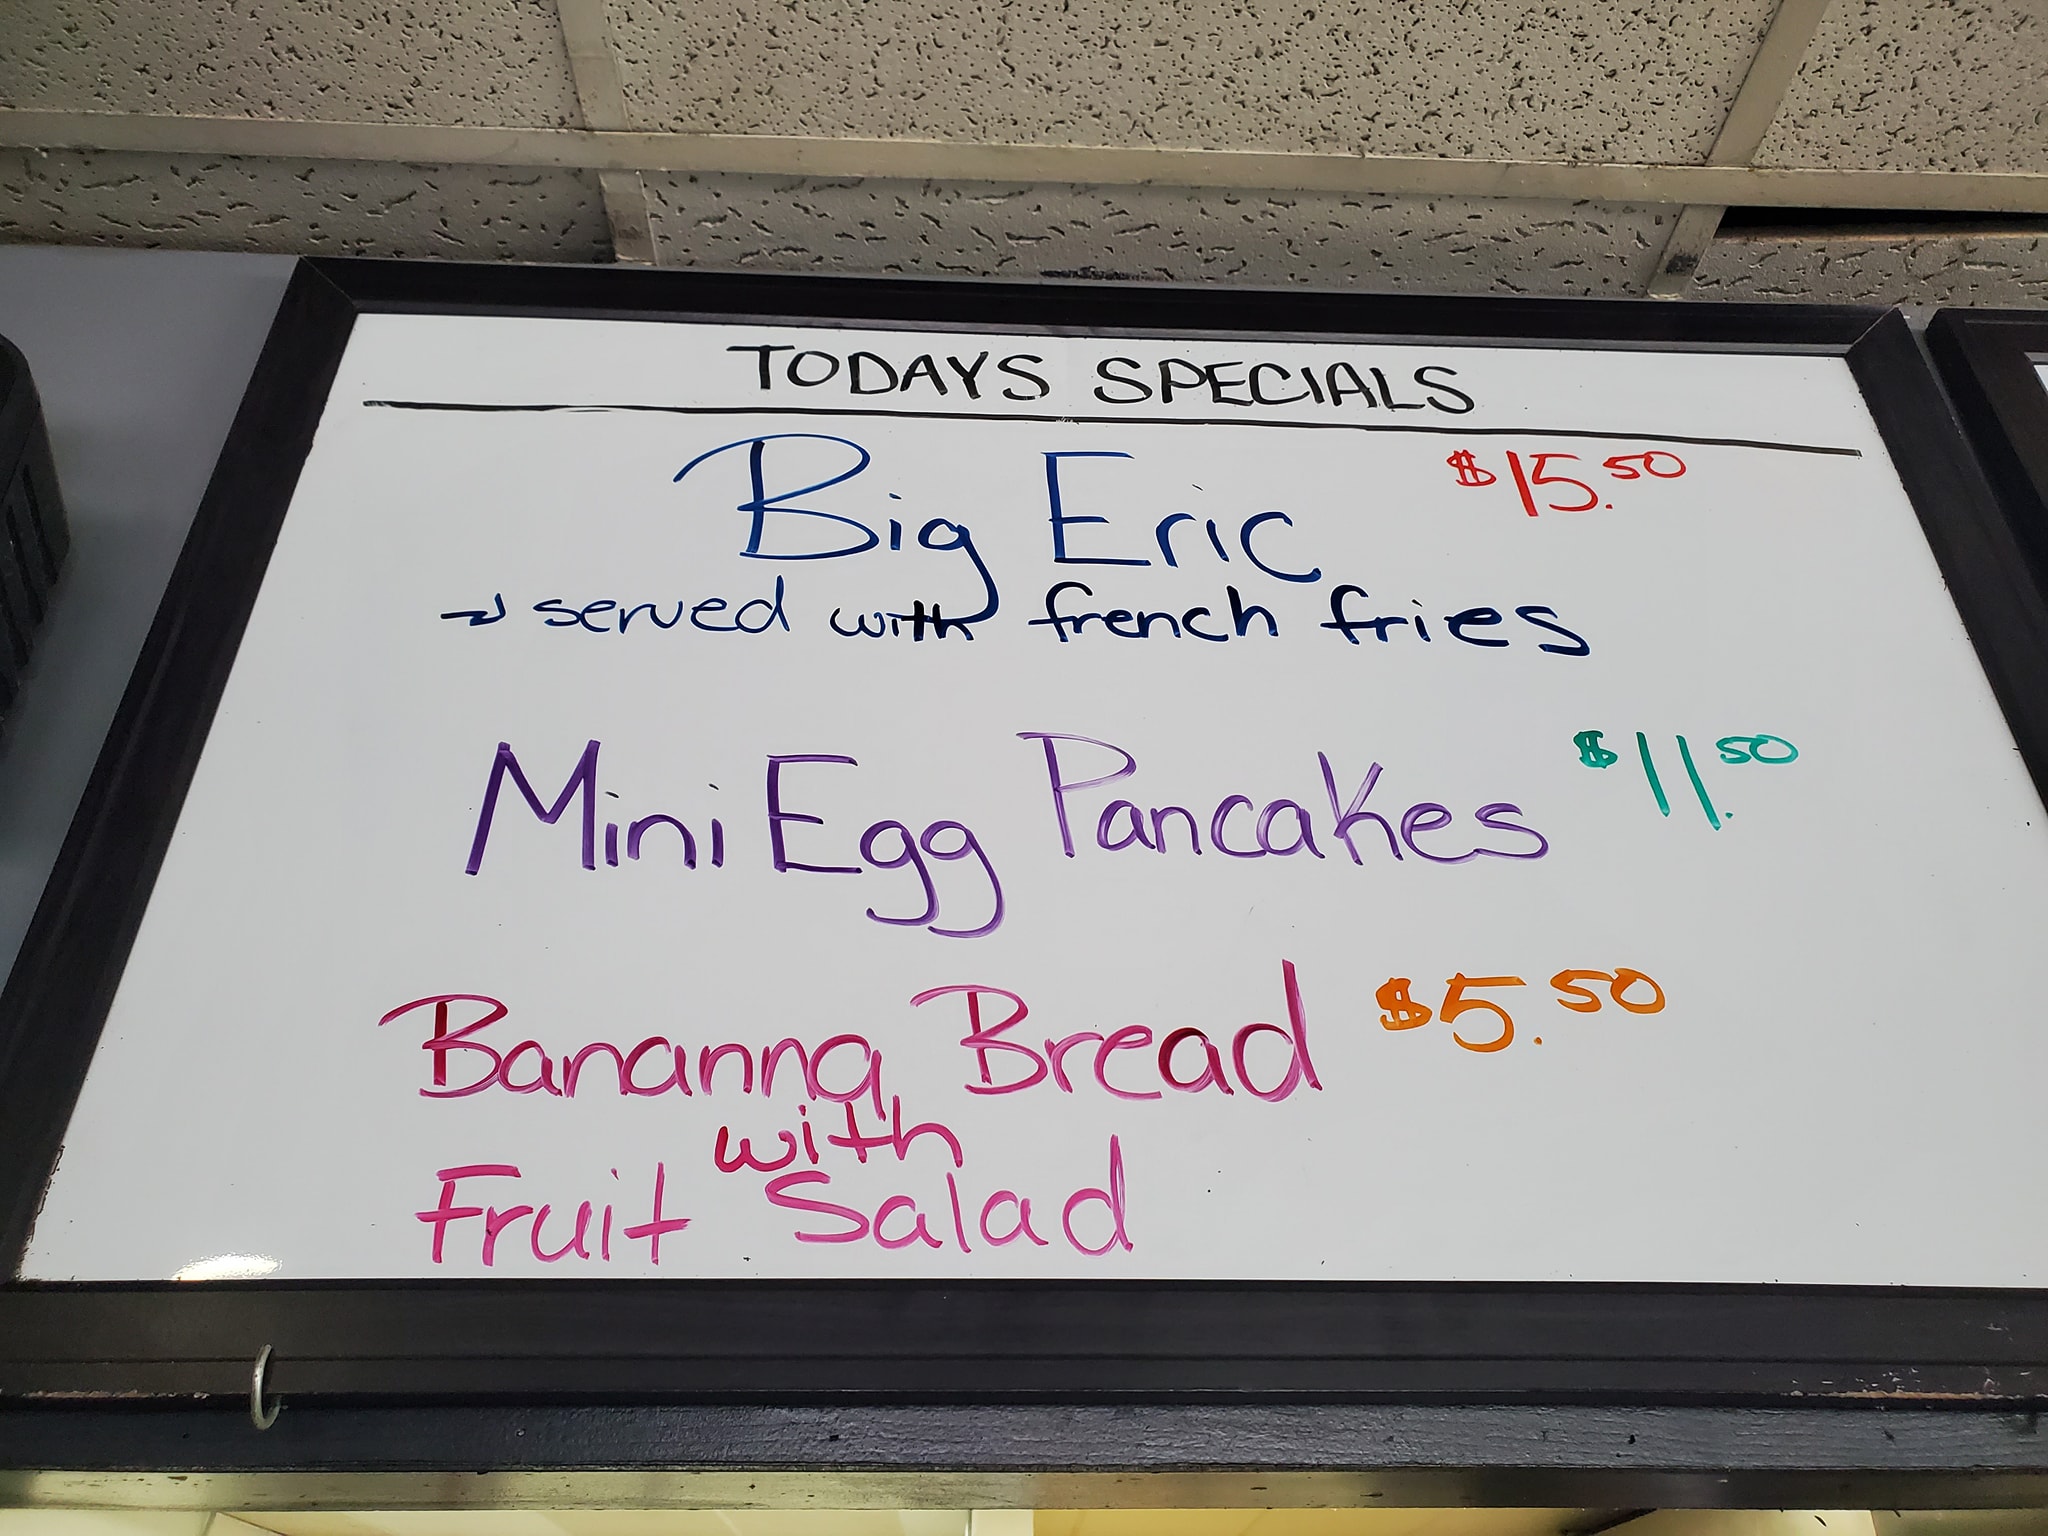 TODAYS SPECIALS
Big Eric $15.50
→ served with french fries
Mini Egg Pancakes $11.50
Bananna Bread $5.50
with
Fruit Salad